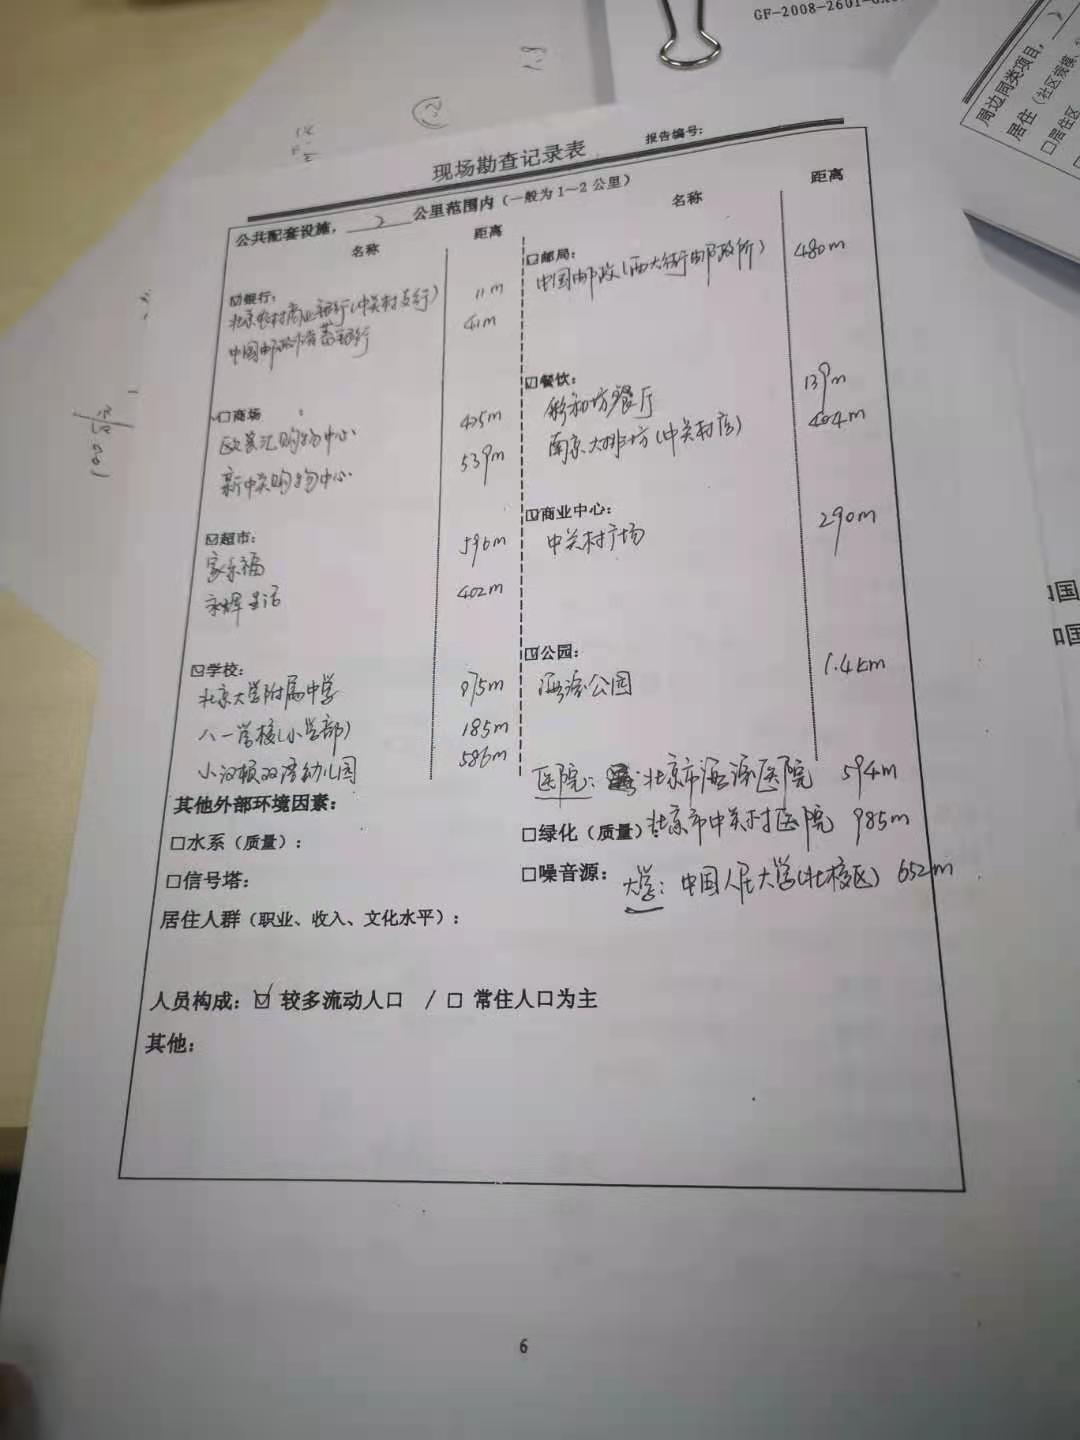 GF-2008-2601-
周边同类项目，
居住（社区规模、
□居住区
现场勘查记录表
报告编号：
公共配套设施， 2 公里范围内（一般为1—2公里）
名称 距离 名称 距离
☑银行：
北京农村商业银行(中关村支行) 11m
中国邮政储蓄银行 41m
□商场：
欧美汇购物中心 425m
新中关购物中心 539m
☑超市：
家乐福 596m
永辉生活 402m
☑学校：
北京大学附属中学 875m
八一学校(小学部) 185m
小汉顿双语幼儿园 586m
□邮局：
中国邮政(西大街邮政所) 480m
☑餐饮：
彩和坊餐厅 139m
南京大排坊(中关村店) 404m
☑商业中心：
中关村广场 290m
☑公园：
海淀公园 1.4km
医院： 北京市海淀医院 594m
北京市中关村医院 985m
大学：中国人民大学(北校区) 652m
其他外部环境因素：
□水系（质量）： □绿化（质量）
□信号塔： □噪音源：
居住人群（职业、收入、文化水平）：
人员构成：☑ 较多流动人口 / □ 常住人口为主
其他：
6